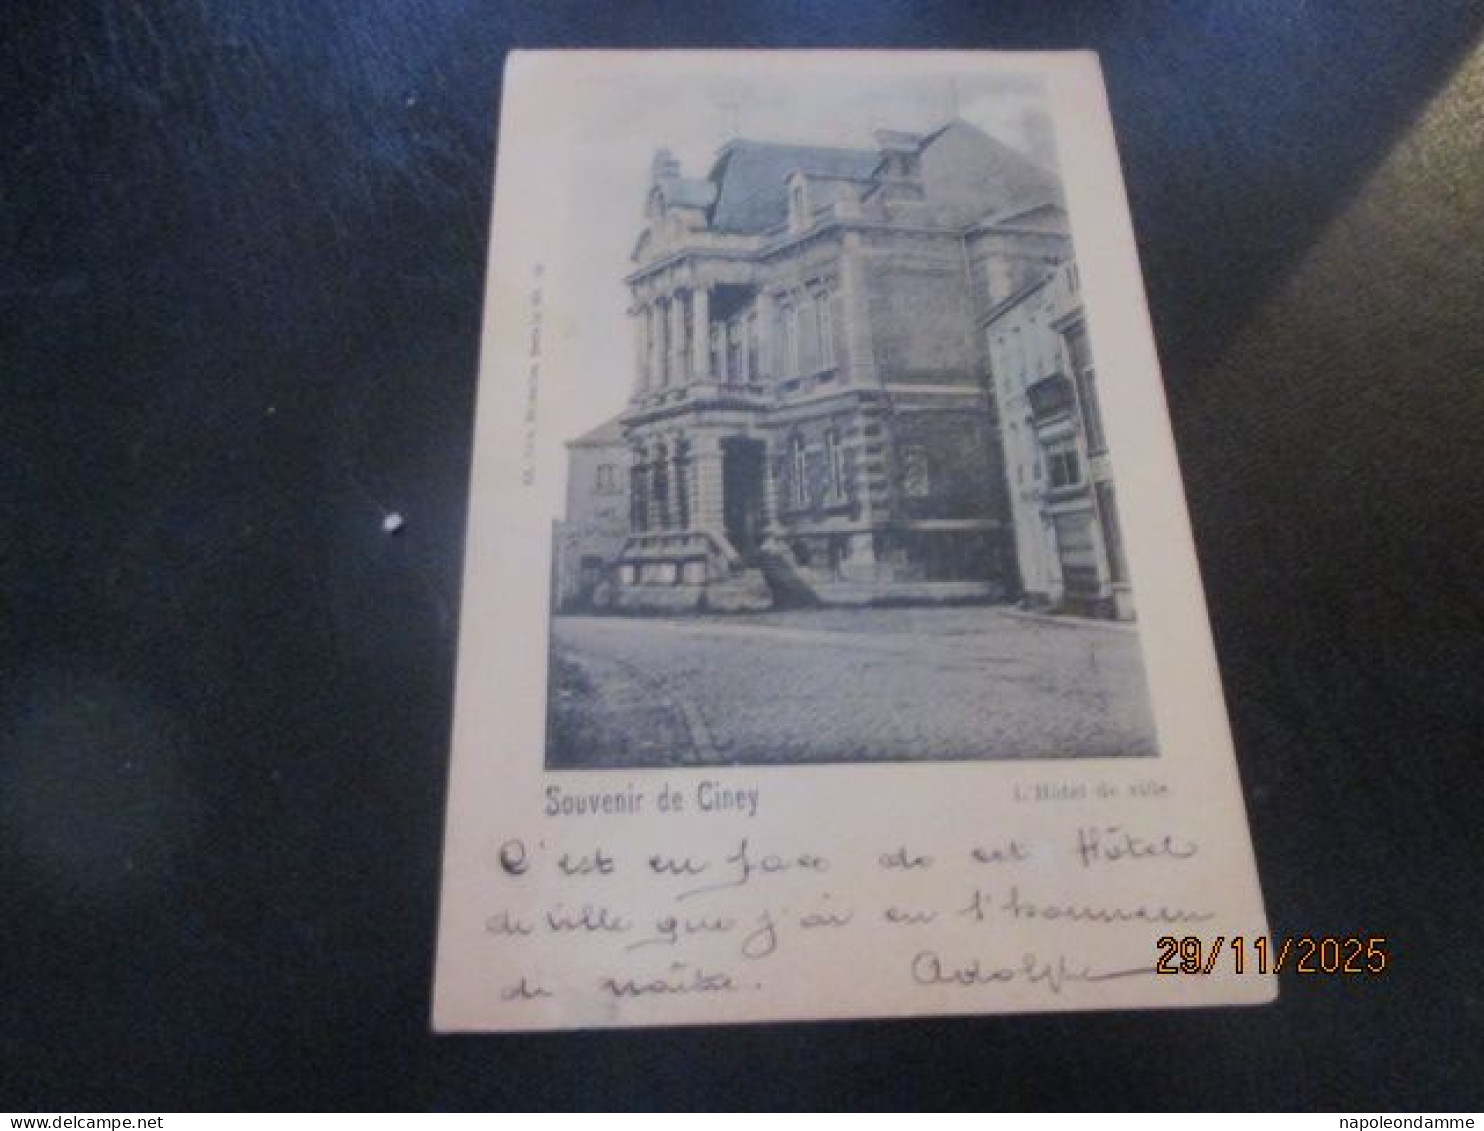 Souvenir de Ciney
L'Hôtel de ville
C'est en face de cet Hôtel
de ville que j'ai eu l'honneur
de naître. Adolphe
29/11/2025
www.delcampe.net
napoleondamme